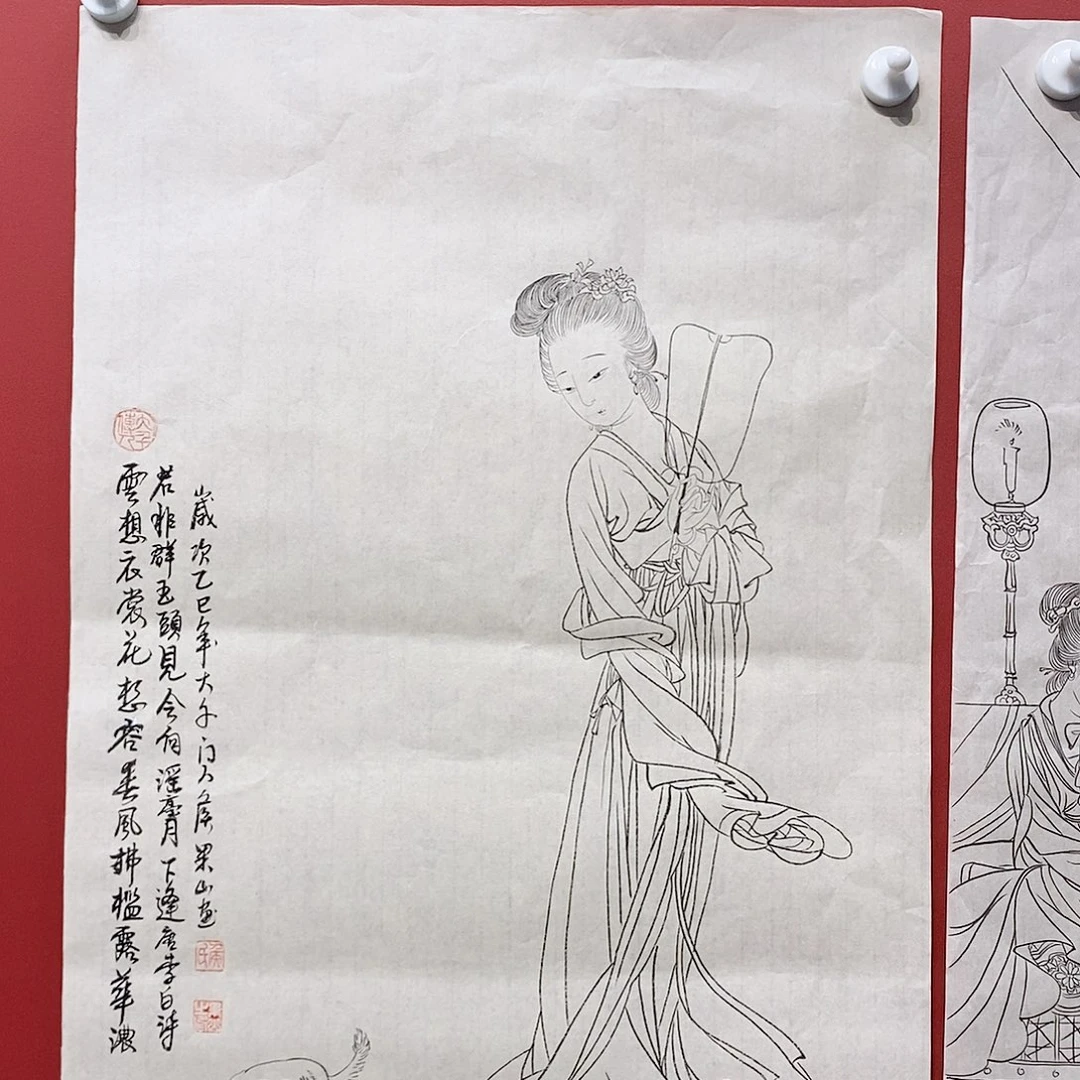 雲想衣裳花想容春風拂檻露華濃
若非群玉頭見会向瑶臺月下逢唐李白詩
歲次乙巳年大千门人侯果山画